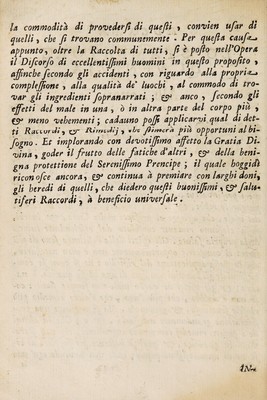 la commodità di provederſi di queſti, convien uſar di
quelli, che ſi trovano communemente. Per queſta cauſa
appunto, oltre la Raccolta di tutti, ſi è poſto nell'Opera
il Diſcorſo di eccellentiſſimi huomini in queſto propoſito,
affinche ſecondo gli accidenti, con riguardo alla propria
compleſſione, alla qualità de' luochi, al commodo di tro-
var gli ingredienti ſopranarrati; & anco, ſecondo gli
effetti del male in una, ò in altra parte del corpo più,
& meno vehementi; cadauno poſſi applicarvi qual di det-
ti Raccordi, & Rimedij, che ſtimerà più opportuni al bi-
ſogno. Et implorando con devotiſſimo affetto la Gratia Di-
vina, goder il frutto delle fatiche d'altri, & della beni-
gna protettione del Sereniſſimo Prencipe; il quale hoggidì
riconoſce ancora, & continua à premiare con larghi doni,
gli heredi di quelli, che diedero queſti buoniſſimi, & ſalu-
tiferi Raccordi, à beneficio univerſale.
IN-